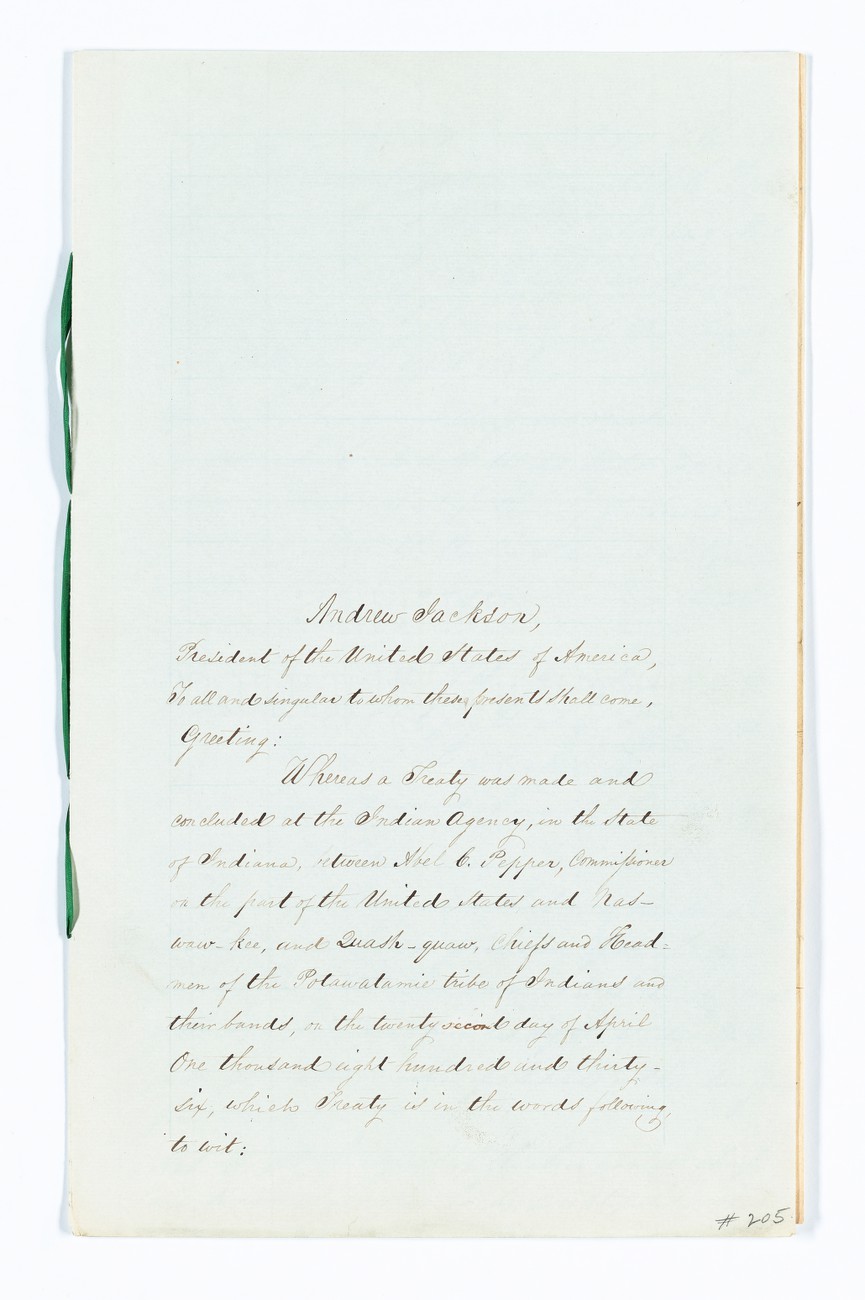 Andrew Jackson,
President of the United States of America,
To all and singular to whom these presents shall come,
Greeting:
Whereas a Treaty was made and
concluded at the Indian Agency, in the State
of Indiana, between Abel C. Pepper, Commissioner
on the part of the United States and Nas-
waw-kee, and Quash-quaw, Chiefs and Head=
men of the Potawatamie tribe of Indians and
their bands, on the twenty second day of April
One thousand eight hundred and thirty-
six, which Treaty is in the words following,
to wit:
# 205